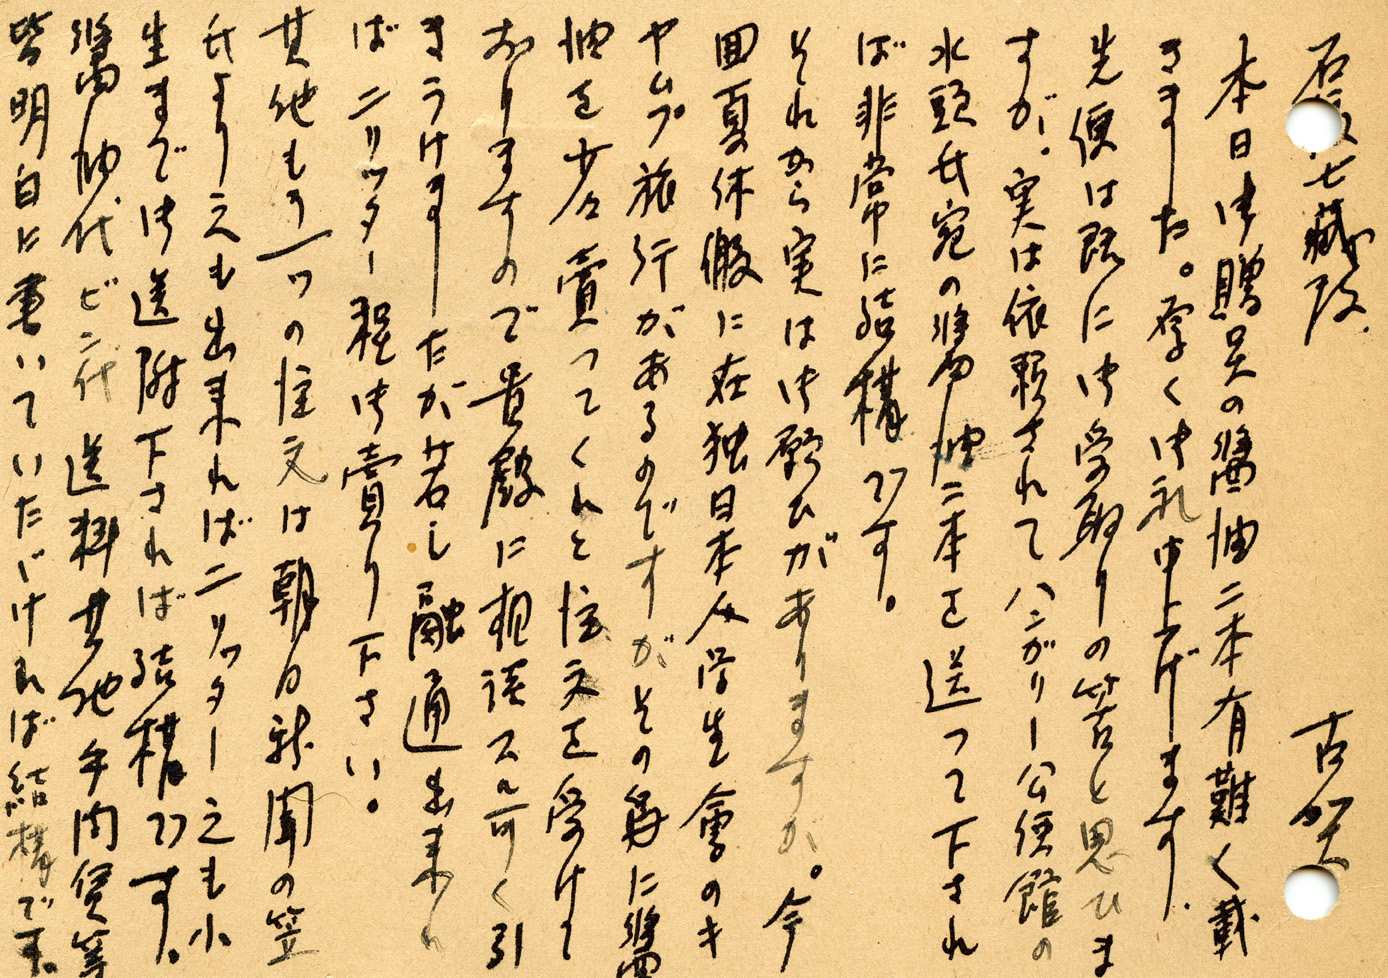 七蔵殿
古賀
本日御贈呈の醤油二本有難く載
きました。厚く御礼申上げます。
先便は既に御受取りの筈と思ひま
すが、実は依頼されてハンガリー公使館の
水頭氏宛の醤油二本を送って下され
ば非常に結構です。
それから実は御願ひがありますが。今
回夏休暇に在独日本人学生會のキ
ヤムプ旅行があるのですがその為に醤
油を少々賣ってくれと注文を受けて
おりますので貴殿に相談スル可く引
きうけましたが若し融通出来れ
ば二リッター程御賣り下さい。
其他もう一つの注文は朝日新聞の笠
氏よりえも出来れば二リッター之も小
生まで御送附下されば結構です。
醤油代ビン代 送料其他手間賃等
皆明白に書いていたゞければ結構です。